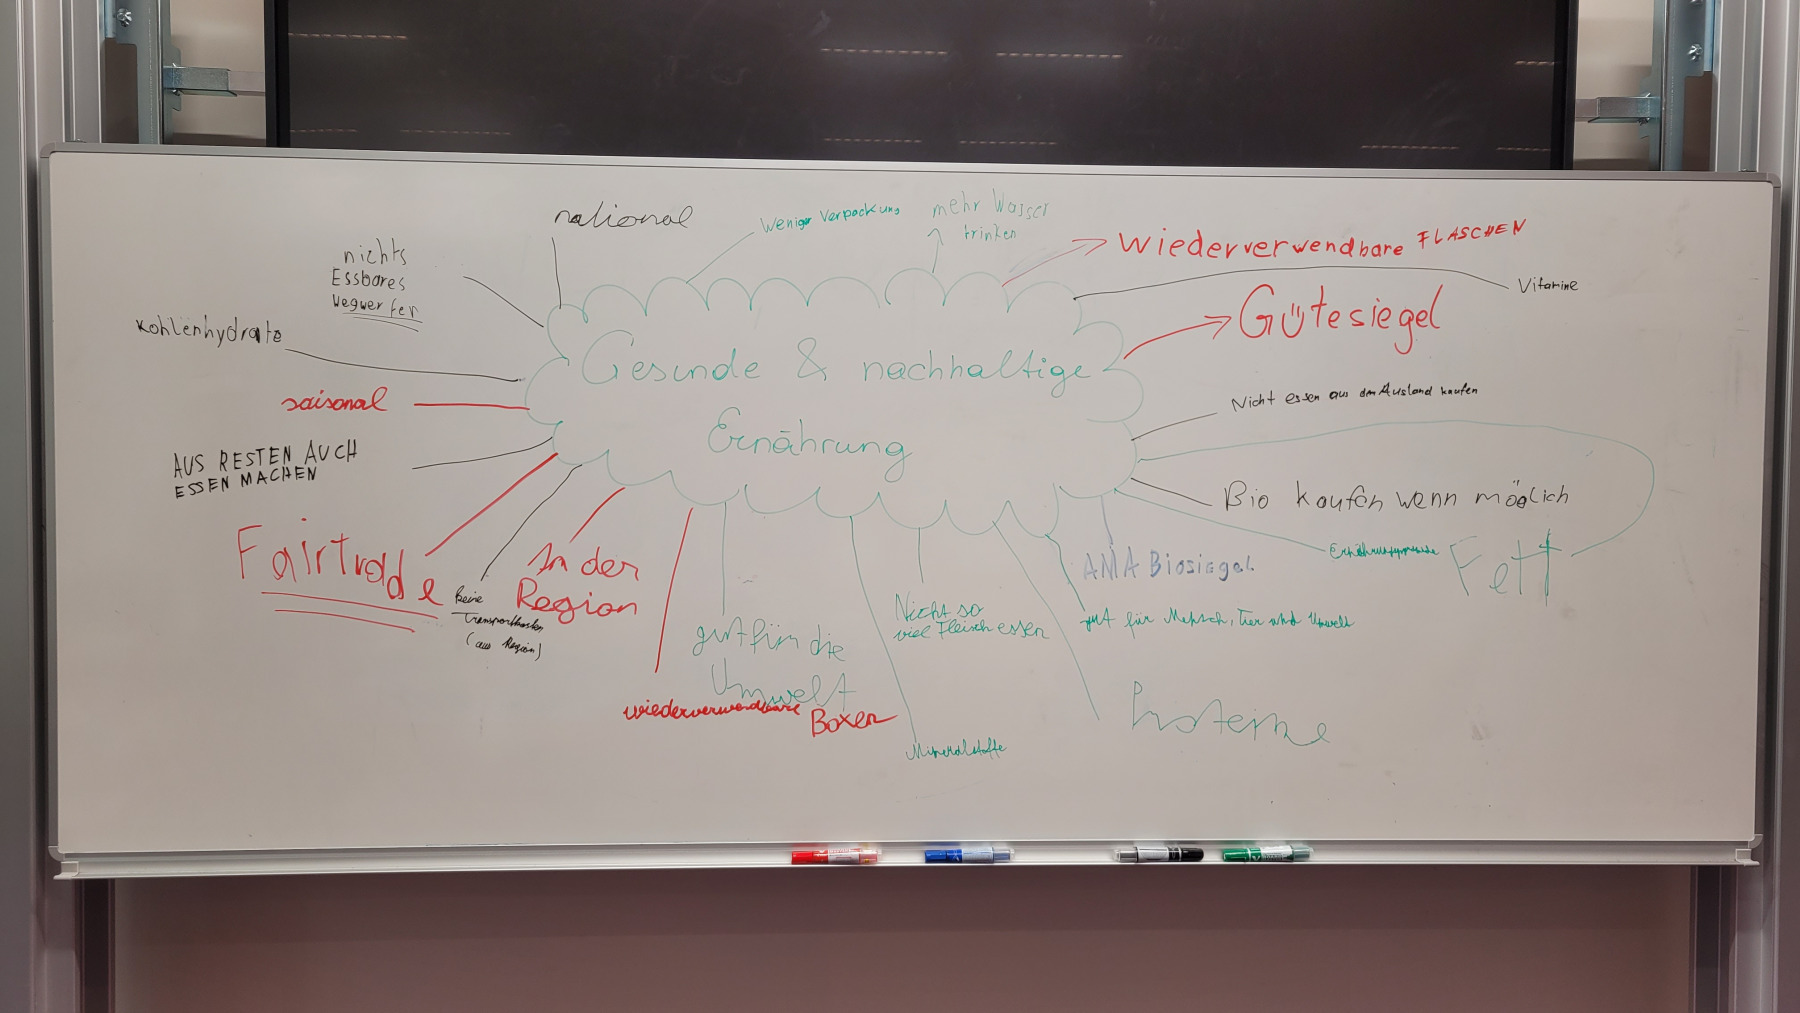 national
Weniger Verpackung
mehr Wasser
trinken
Wiederverwendbare FLASCHEN
nichts
Essbares
Wegwerfen
Vitamine
Gütesiegel
Kohlenhydrate
Gesunde & nachhaltige
Ernährung
saisonal
Nicht essen aus dem Ausland kaufen
AUS RESTEN AUCH
ESSEN MACHEN
Bio kaufen wenn möglich
Fairtrade
In der
Region
AMA Biosiegel
Fett
keine
Transportkosten
(aus Region)
Nicht so
viel Fleisch essen
gut für Mensch, Tier und Umwelt
gut für die
Umwelt
wiederverwendbare Boxen
Proteine
Mineralstoffe